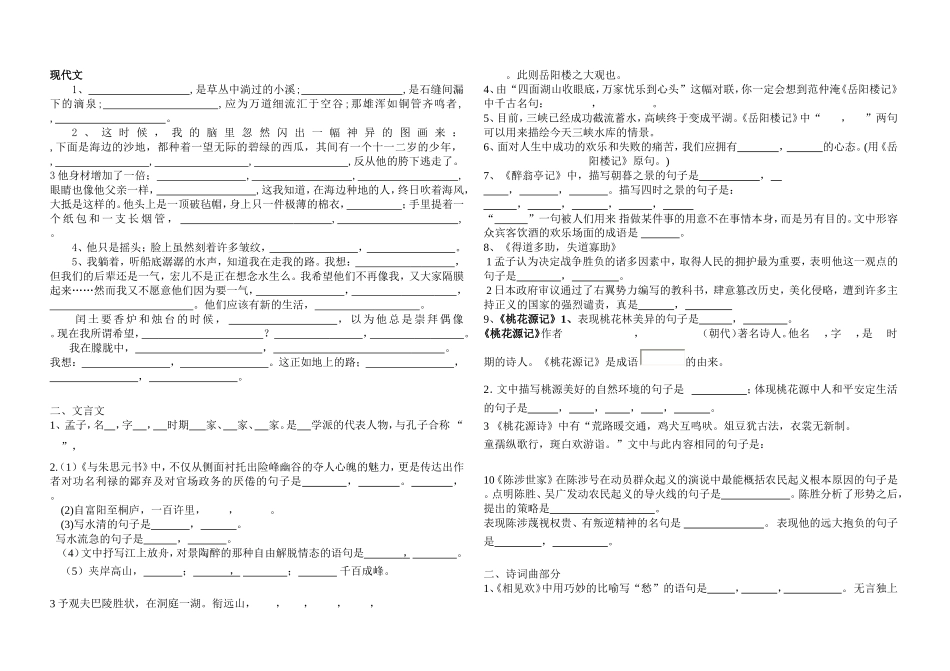 现代文
1、__________________,是草丛中淌过的小溪;__________________,是石缝间漏
下的滴泉;____________________,应为万道细流汇于空谷;那雄浑如铜管齐鸣者,
,____________________。
2、这时候,我的脑里忽然闪出一幅神异的图画来:
,下面是海边的沙地,都种着一望无际的碧绿的西瓜,其间有一个十一二岁的少年,
,________________,________________,________________,反从他的胯下逃走了。
3 他身材增加了一倍;________________,________________,________________,
眼睛也像他父亲一样,__________________,这我知道,在海边种地的人,终日吹着海风,
大抵是这样的。他头上是一顶破毡帽,身上只一件极薄的棉衣,__________;手里提着一
个纸包和一支长烟管,__________________________,____________________,
。
4、他只是摇头;脸上虽然刻着许多皱纹,________________,________________。
5、我躺着,听船底潺潺的水声,知道我在走我的路。我想:__________________,
但我们的后辈还是一气,宏儿不是正在想念水生么。我希望他们不再像我,又大家隔膜
起来……然而我又不愿意他们因为要一气,________________,__________________,
__________________________。他们应该有新的生活,__________________。
闰土要香炉和烛台的时候,____________________,以为他总是崇拜偶像
。现在我所谓希望,______________________?____________________,________________。
我在朦胧中,______________________,______________________________。
我想:________________,________________。这正如地上的路;________________,
________________,________________。
二、文言文
1、孟子,名__,字__,__时期___家、__家、__家。是__学派的代表人物,与孔子合称“
”,
2.(1)《与朱思元书》中,不仅从侧面衬托出险峰幽谷的夺人心魄的魅力,更是传达出作
者对功名利禄的鄙弃及对官场政务的厌倦的句子是________,________。_______,
。
(2)自富阳至桐庐,一百许里, , 。
(3)写水清的句子是_______,______。
写水流急的句子是______,______。
(4)文中抒写江上放舟,对景陶醉的那种自由解脱情态的语句是_______,________。
(5)夹岸高山,_______;_______,________;_______千百成峰。
3 予观夫巴陵胜状,在洞庭一湖。衔远山, , , , ,
。此则岳阳楼之大观也。
4、由“四面湖山收眼底,万家忧乐到心头”这幅对联,你一定会想到范仲淹《岳阳楼记》
中千古名句: , 。
5、目前,三峡已经成功截流蓄水,高峡终于变成平湖。《岳阳楼记》中“ , ”两句
可以用来描绘今天三峡水库的情景。
6、面对人生中成功的欢乐和失败的痛苦,我们应拥有_______,______的心态。(用《岳
阳楼记》原句。)
7、《醉翁亭记》中,描写朝暮之景的句子是___________,__
____,______,______。描写四时之景的句子是:
______,_____,_____,_____,_____
“______”一句被人们用来 指做某件事的用意不在事情本身,而是另有目的。文中形容
众宾客饮酒的欢乐场面的成语是 _______。
8、《得道多助,失道寡助》
1 孟子认为决定战争胜负的诸多因素中,取得人民的拥护最为重要,表明他这一观点的
句子是________,________。
2 日本政府审议通过了右翼势力编写的教科书,肆意篡改历史,美化侵略,遭到许多主
持正义的国家的强烈谴责,真是_______,______________
9、《桃花源记》1、表现桃花林美异的句子是_____,_______。
《桃花源记》作者 , (朝代)著名诗人。他名 ,字 ,是 时
期的诗人。《桃花源记》是成语 的由来。
2. 文中描写桃源美好的自然环境的句子是 __________;体现桃花源中人和平安定生活
的句子是_____,____,____,____,____,______。
3 《桃花源诗》中有“荒路暧交通,鸡犬互鸣吠。俎豆犹古法,衣裳无新制。
童孺纵歌行,斑白欢游诣。”文中与此内容相同的句子是:
10《陈涉世家》在陈涉号在动员群众起义的演说中最能概括农民起义根本原因的句子是
。点明陈胜、吴广发动农民起义的导火线的句子是____________。陈胜分析了形势之后,
提出的策略是___________________。
表现陈涉蔑视权贵、有叛逆精神的名句是 ______________。表现他的远大抱负的句子
是________,__________。
二、诗词曲部分
1、《相见欢》中用巧妙的比喻写“愁”的语句是_____,______,__________。无言独上